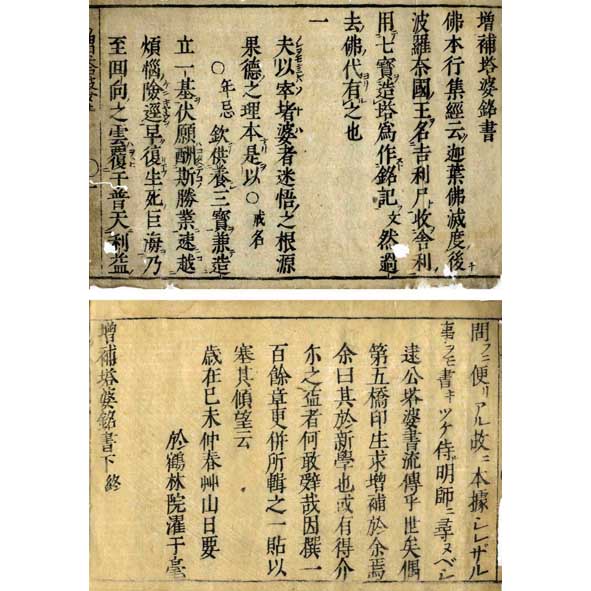 增補塔婆銘書
佛本行集經云迦葉佛滅度後
波羅奈國王名吉利尸收舎利
用七寶造塔爲作銘記文然過
去佛代有之也
一
夫以宰堵婆者迷悟之根源
果德之理本是以〇戒名
〇年忌 欽供養三寶兼造
立一基伏願酬斯勝業速越
煩惱險逕早復生死巨海乃
至回向之雲覆于普天利益
問フニ便リアル故ニ本據シレザル
事ヲモ書キツケ侍明師ニ尋ヌベシ
逮公塔婆書流傳乎世矣偶
第五橋印生求增補於余焉
余曰其於新學也或有得介
尒之益者何敢辭哉因撰一
百餘章更併所輯之一貼以
塞其傾望云
歳在己未仲春艸山日要
於鶴林院濯于毫
增補塔婆銘書下終